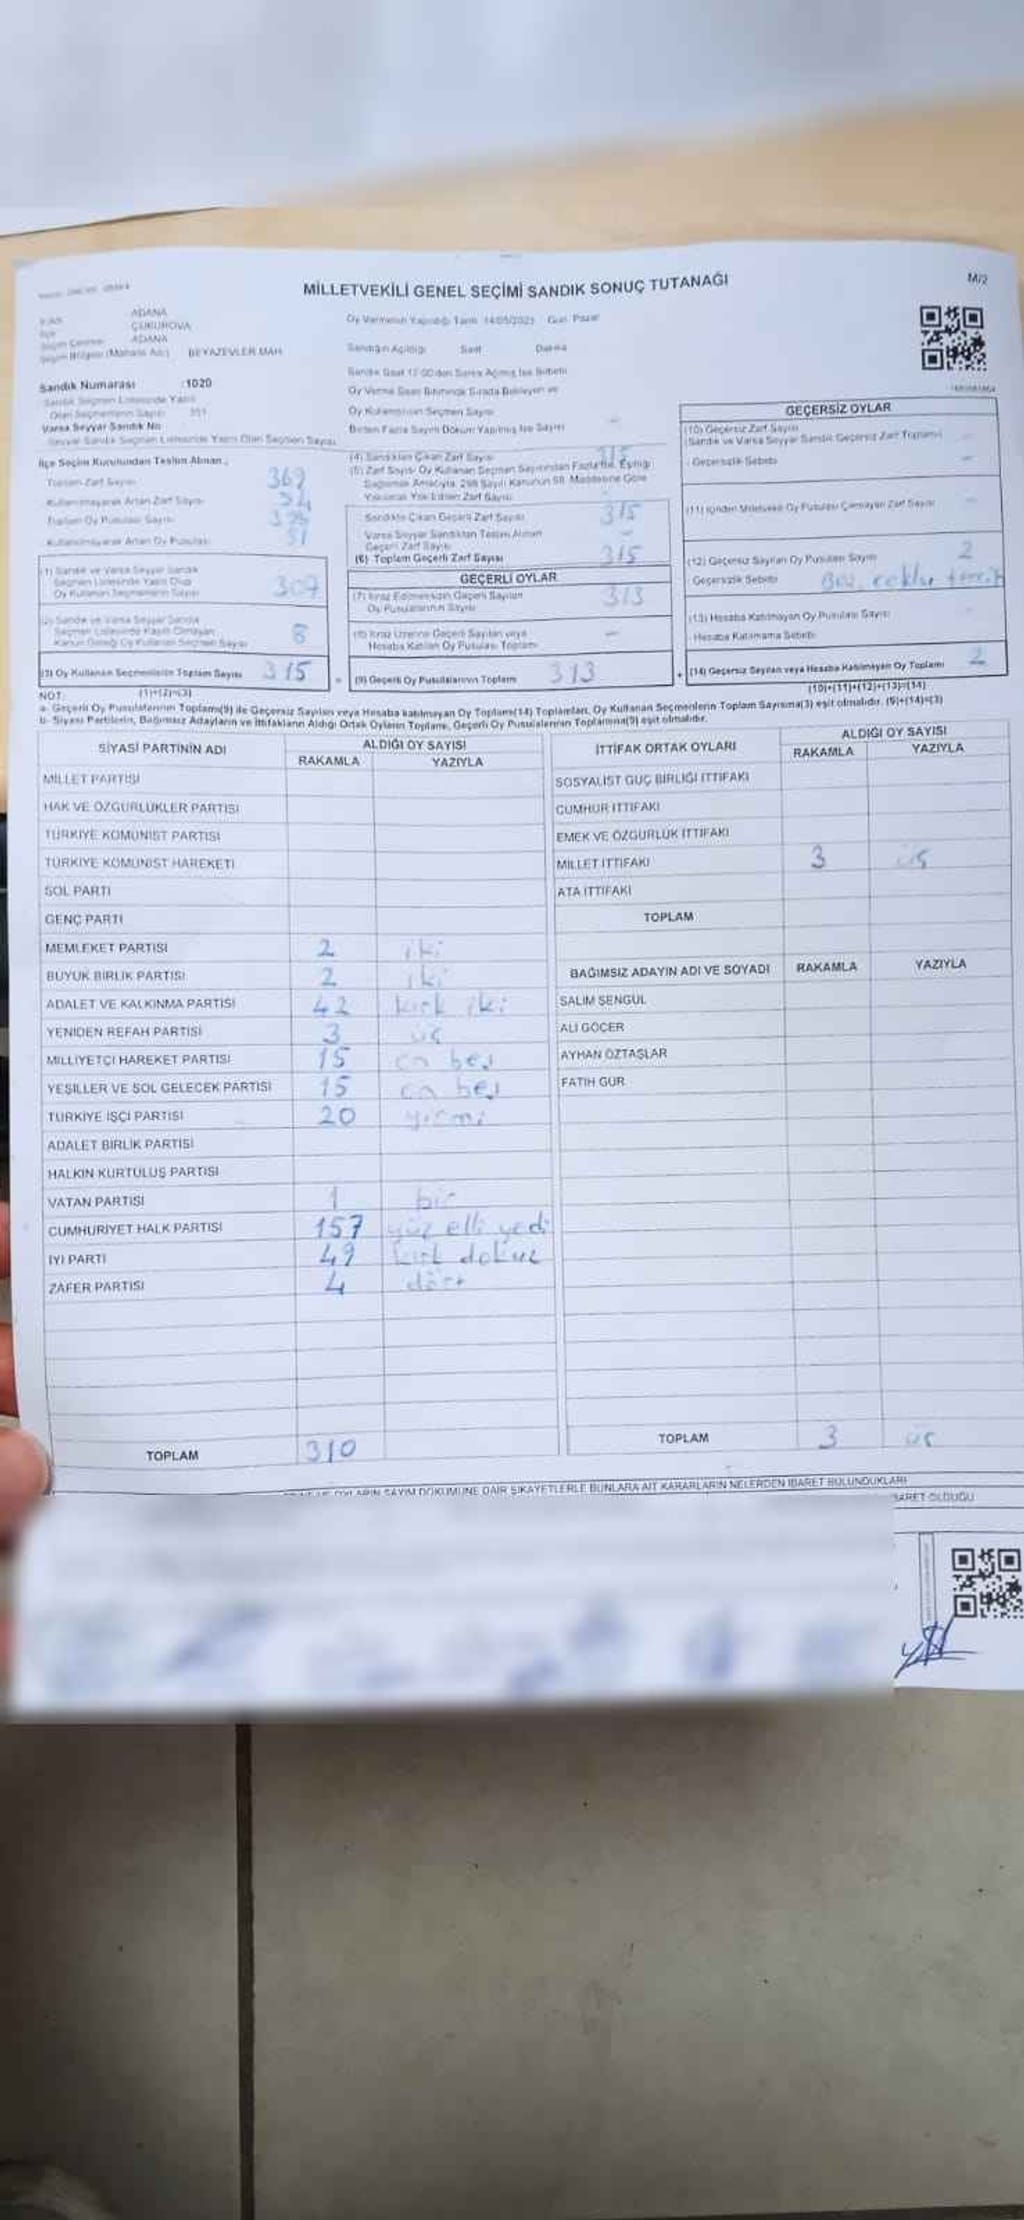 MİLLETVEKİLİ GENEL SEÇİMİ SANDIK SONUÇ TUTANAĞI
M/2
ADANA
ÇUKUROVA
ADANA
Seçim Bölgesi (Mahalle Adı) BEYAZEVLER MAH.
Oy Vermenin Yapıldığı Tarih 14/05/2023 Gün Pazar
Sandığın Açıldığı Saat Dakika
Sandık Numarası :1020
Sandık Seçmen Listesinde Yazılı
Olan Seçmenlerin Sayısı 351
Varsa Seyyar Sandık No
Seyyar Sandık Seçmen Listesinde Yazılı Olan Seçmen Sayısı
Oy Kullandırılan Seçmen Sayısı
Birden Fazla Sayım Döküm Yapılmış İse Sayısı -
İlçe Seçim Kurulundan Teslim Alınan
Toplam Zarf Sayısı 369
Kullanılmayarak Artan Zarf Sayısı
Toplam Oy Pusulası Sayısı
Kullanılmayarak Artan Oy Pusulası 51
(1) Sandık ve Varsa Seyyar Sandık
Seçmen Listesinde Yazılı Olup
Oy Kullanan Seçmenlerin Sayısı 307
(2) Sandık ve Varsa Seyyar Sandık
Seçmen Listesinde Kayıtlı Olmayan
Kanun Gereği Oy Kullanan Seçmen Sayısı 8
(3) Oy Kullanan Seçmenlerin Toplam Sayısı 315
(4) Sandıktan Çıkan Zarf Sayısı 315
(5) Zarf Sayısı Oy Kullanan Seçmen Sayısından Fazla İse, Eşitliği
Sağlamak Amacıyla, 298 Sayılı Kanunun 98. Maddesine Göre
Yakılarak Yok Edilen Zarf Sayısı
Sandıkta Çıkan Geçerli Zarf Sayısı 315
Varsa Seyyar Sandıktan Teslim Alınan
Geçerli Zarf Sayısı -
(6) Toplam Geçerli Zarf Sayısı 315
GEÇERLİ OYLAR
(7) İtiraz Edilmeksizin Geçerli Sayılan
Oy Pusulalarının Sayısı 313
(8) İtiraz Üzerine Geçerli Sayılan veya
Hesaba Katılan Oy Pusulası Toplamı -
(9) Geçerli Oy Pusulalarının Toplamı 313
GEÇERSİZ OYLAR
(10) Geçersiz Zarf Sayısı
(Sandık ve Varsa Seyyar Sandık Geçersiz Zarf Toplamı) -
Geçersizlik Sebebi -
(11) İçinden Milletvekili Oy Pusulası Çıkmayan Zarf Sayısı -
(12) Geçersiz Sayılan Oy Pusulası Sayısı 2
Geçersizlik Sebebi
(13) Hesaba Katılmayan Oy Pusulası Sayısı -
Hesaba Katılmama Sebebi
(14) Geçersiz Sayılan veya Hesaba Katılmayan Oy Toplamı 2
NOT: (1)+(2)=(3)
(10)+(11)+(12)+(13)=(14)
a- Geçerli Oy Pusulalarının Toplamı(9) ile Geçersiz Sayılan veya Hesaba katılmayan Oy Toplamı(14) Toplamları, Oy Kullanan Seçmenlerin Toplam Sayısına(3) eşit olmalıdır. (9)+(14)=(3)
b- Siyasi Partilerin, Bağımsız Adayların ve İttifakların Aldığı Ortak Oyların Toplamı, Geçerli Oy Pusulalarının Toplamına(9) eşit olmalıdır.
SİYASİ PARTİNİN ADI
ALDIĞI OY SAYISI
RAKAMLA YAZIYLA
MİLLET PARTİSİ
HAK VE ÖZGÜRLÜKLER PARTİSİ
TÜRKİYE KOMÜNİST PARTİSİ
TÜRKİYE KOMÜNİST HAREKETİ
SOL PARTİ
GENÇ PARTİ
MEMLEKET PARTİSİ 2 iki
BÜYÜK BİRLİK PARTİSİ 2 iki
ADALET VE KALKINMA PARTİSİ 42 kırk iki
YENİDEN REFAH PARTİSİ 3 üç
MİLLİYETÇİ HAREKET PARTİSİ 15 on beş
YEŞİLLER VE SOL GELECEK PARTİSİ 15 on beş
TÜRKİYE İŞÇİ PARTİSİ 20 yirmi
ADALET BİRLİK PARTİSİ
HALKIN KURTULUŞ PARTİSİ
VATAN PARTİSİ 1 bir
CUMHURİYET HALK PARTİSİ 157 yüz elli yedi
İYİ PARTİ 49 kırk dokuz
ZAFER PARTİSİ 4 dört
TOPLAM 310
İTTİFAK ORTAK OYLARI
ALDIĞI OY SAYISI
RAKAMLA YAZIYLA
SOSYALİST GÜÇ BİRLİĞİ İTTİFAKI
CUMHUR İTTİFAKI
EMEK VE ÖZGÜRLÜK İTTİFAKI
MİLLET İTTİFAKI 3 üç
ATA İTTİFAKI
TOPLAM
BAĞIMSIZ ADAYIN ADI VE SOYADI RAKAMLA YAZIYLA
SALİM ŞENGÜL
ALİ GÖÇER
AYHAN ÖZTAŞLAR
FATİH GÜR
TOPLAM 3 üç
SAYIM DÖKÜMÜNE DAİR ŞİKAYETLERLE BUNLARA AİT KARARLARIN NELERDEN İBARET BULUNDUKLARI
OLDUĞU